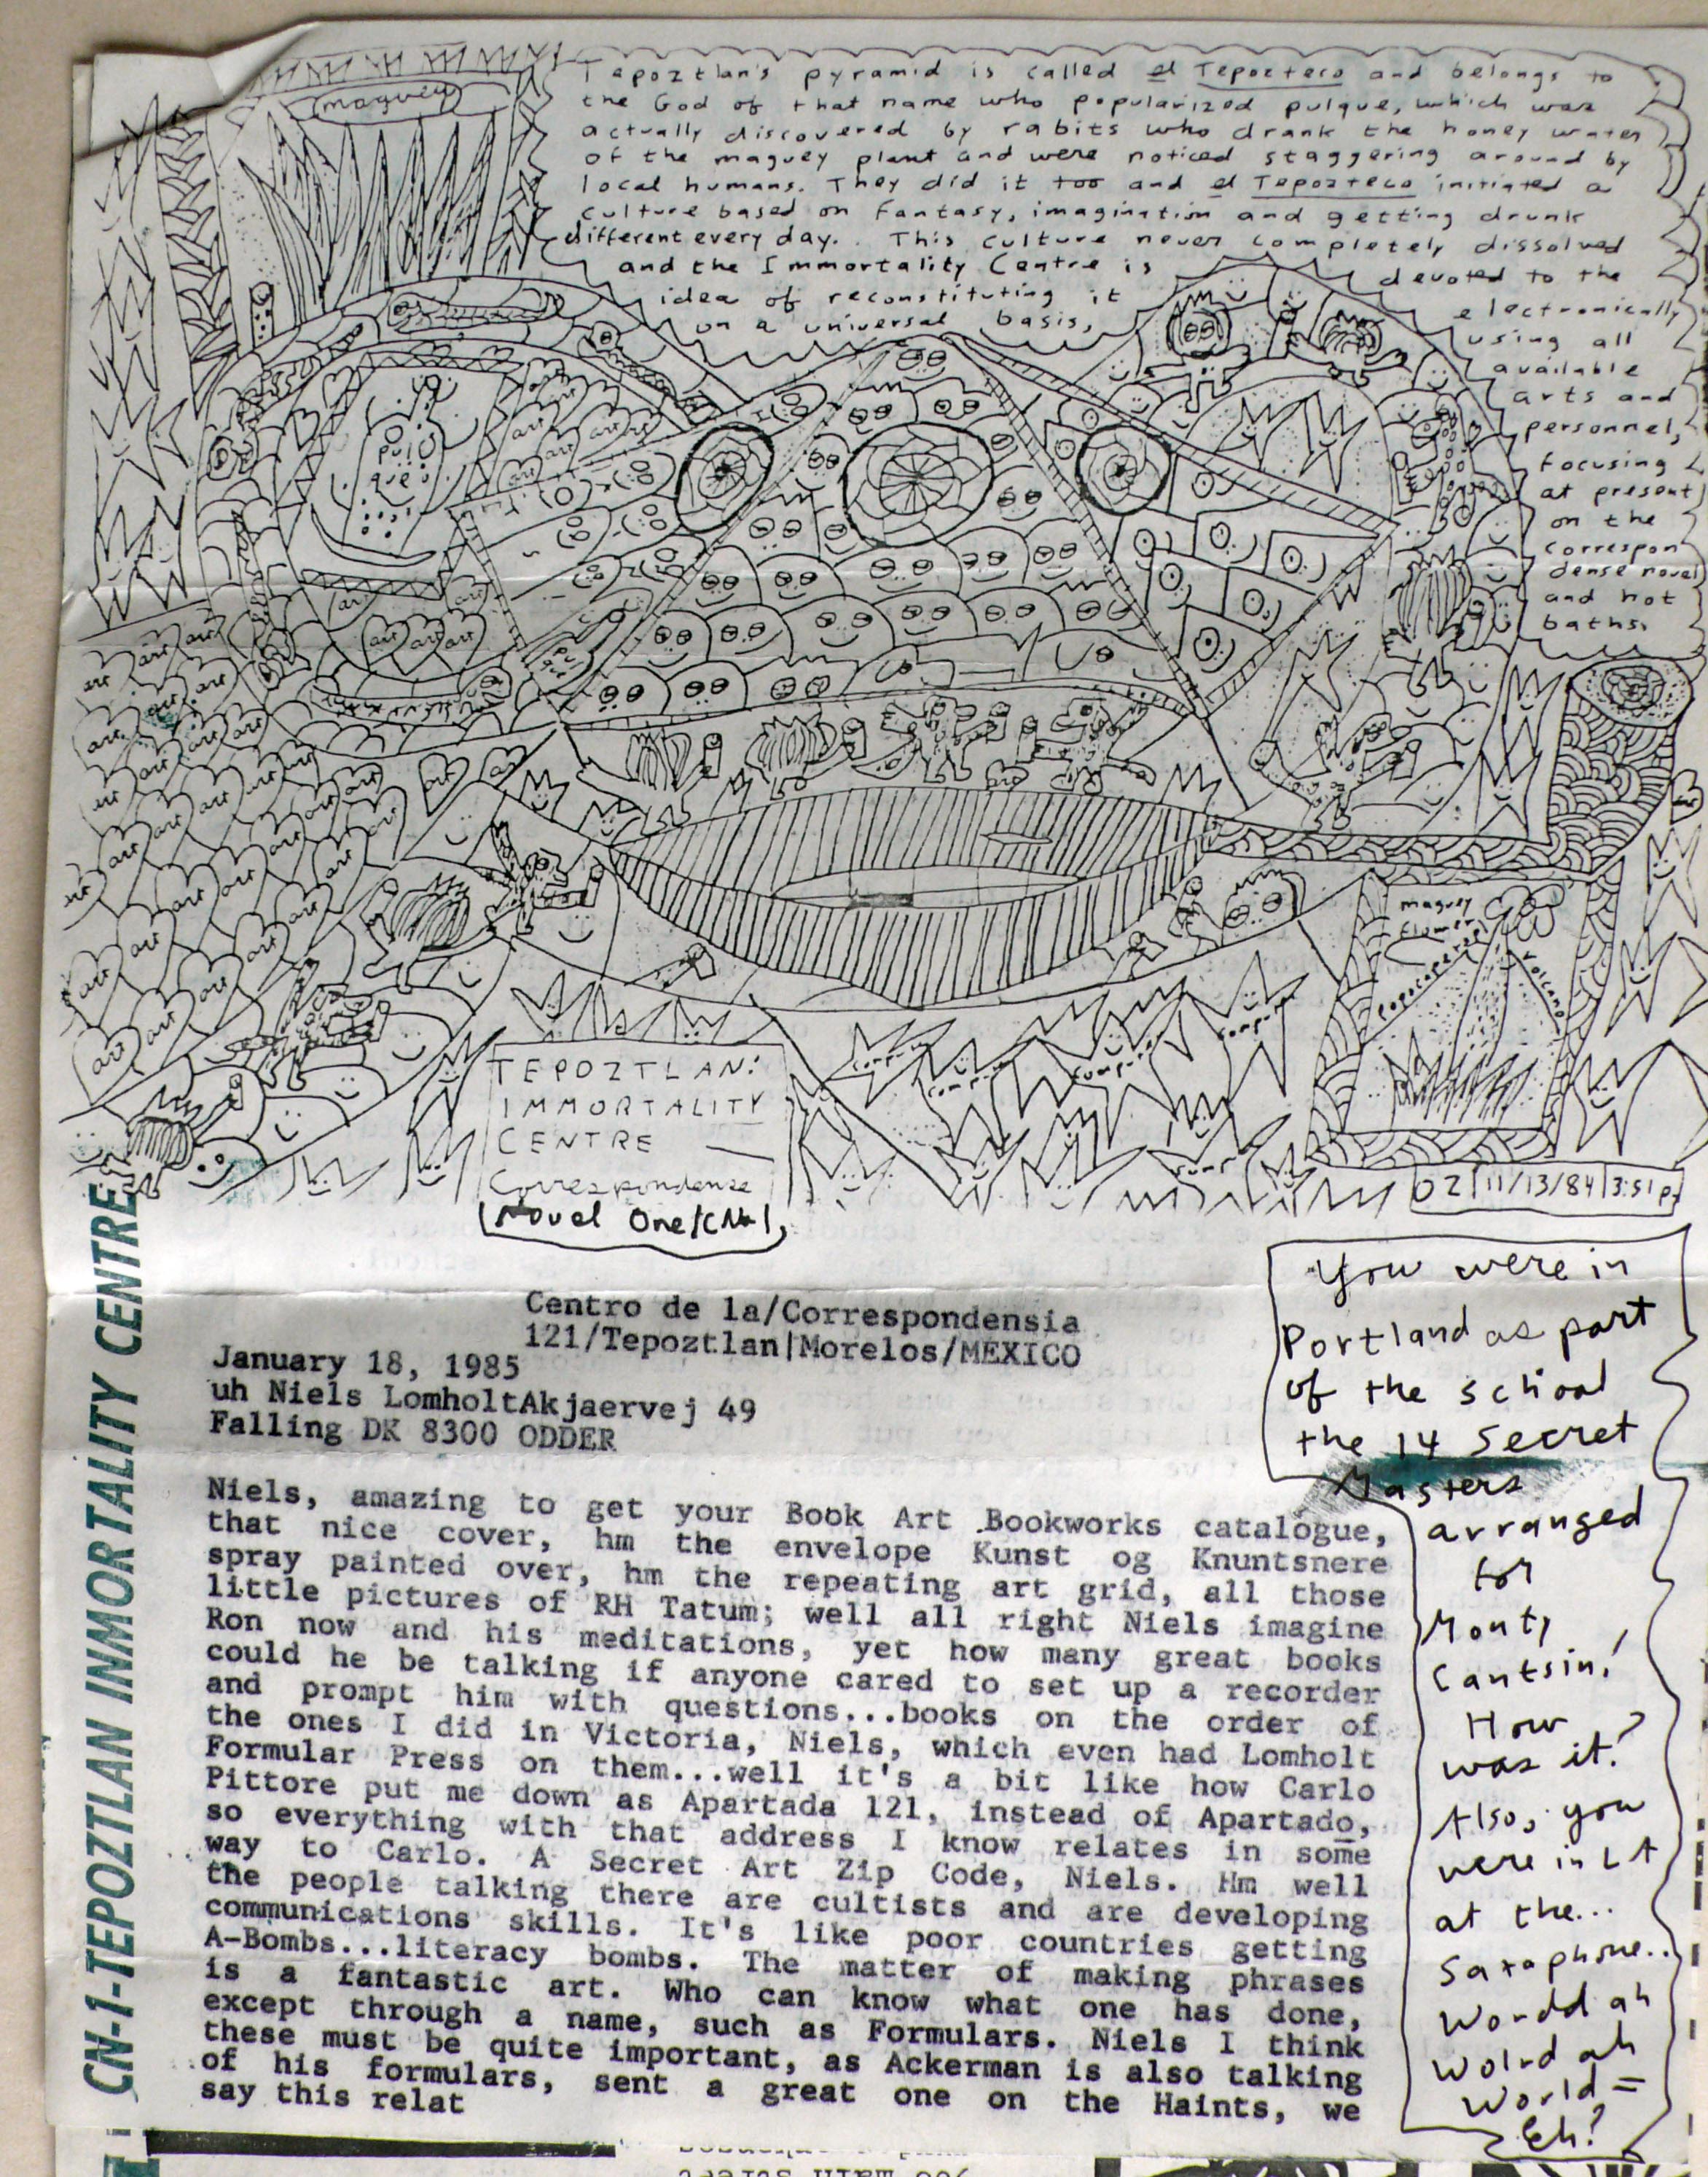 maguey
Tepoztlan's pyramid is called el Tepozteco and belongs to
the God of that name who popularized pulque, which was
actually discovered by rabits who drank the honey water
of the maguey plant and were noticed staggering around by
local humans. They did it too and el Tepozteco initiated a
culture based on fantasy, imagination and getting drunk
different every day. This culture never completely dissolved
and the Immortality Centre is devoted to the
idea of reconstituting it electronically
on a universal basis, using all
available
arts and
personnel,
focusing
at present
on the
correspon
dense novel
and hot
baths.
pul
que
art art art art
art art art
art art art
maguey
flower
popocapetepl
volcano
TEPOZTLAN:
IMMORTALITY
CENTRE —
Correspondense
Novel One/CN-1,
02 11/13/84 3:51 p.
CN-1-TEPOZTLAN INMORTALITY CENTRE
Centro de la/Correspondensia
121/Tepoztlan|Morelos/MEXICO
January 18, 1985
uh Niels LomholtAkjaervej 49
Falling DK 8300 ODDER
Niels, amazing to get your Book Art Bookworks catalogue,
that nice cover, hm the envelope Kunst og Knuntsnere
spray painted over, hm the repeating art grid, all those
little pictures of RH Tatum; well all right Niels imagine
Ron now and his meditations, yet how many great books
could he be talking if anyone cared to set up a recorder
and prompt him with questions...books on the order of
the ones I did in Victoria, Niels, which even had Lomholt
Formular Press on them...well it's a bit like how Carlo
Pittore put me down as Apartada 121, instead of Apartado,
so everything with that address I know relates in some
way to Carlo. A Secret Art Zip Code, Niels. Hm well
the people talking there are cultists and are developing
communications skills. It's like poor countries getting
A-Bombs...literacy bombs. The matter of making phrases
is a fantastic art. Who can know what one has done,
except through a name, such as Formulars. Niels I think
these must be quite important, as Ackerman is also talking
of his formulars, sent a great one on the Haints, we
say this relat
You were in
Portland as part
of the school
the 14 Secret
Masters
arranged
for
Monty
Cantsin!
How
was it?
Also, you
were in LA
at the...
Saxaphone..
Wordd ah
Wolrd ah
World =
Eh?